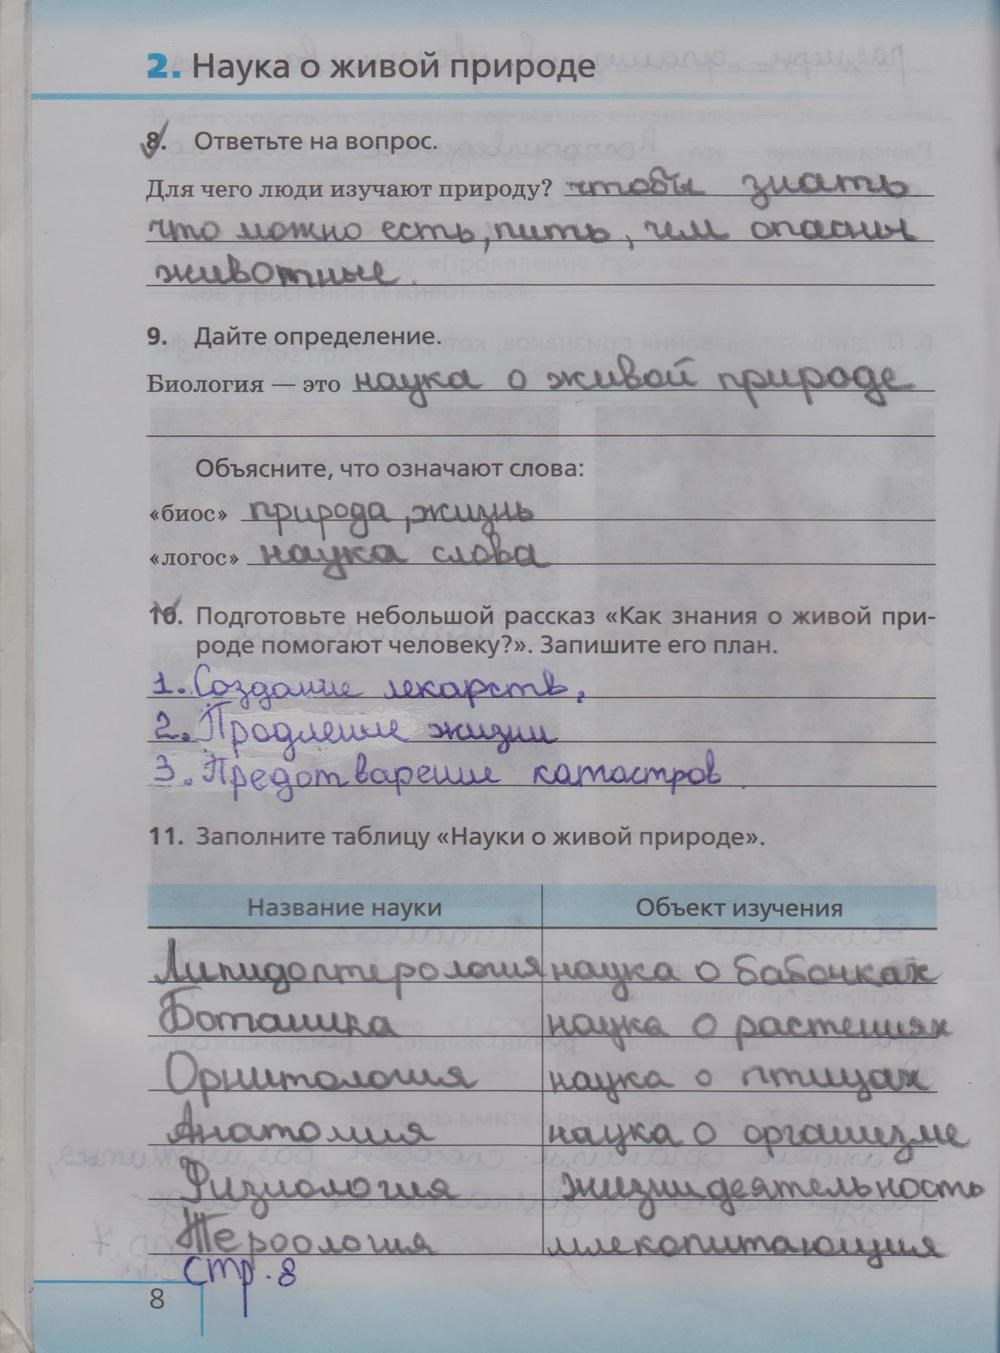 2. Наука о живой природе
8. Ответьте на вопрос.
Для чего люди изучают природу? чтобы знать
что можно есть, пить, чем опасны
животные.
9. Дайте определение.
Биология — это наука о живой природе
Объясните, что означают слова:
«биос» природа, жизнь
«логос» наука слова
10. Подготовьте небольшой рассказ «Как знания о живой при-
роде помогают человеку?». Запишите его план.
1. Создание лекарств.
2. Продление жизни
3. Предотварение катастров.
11. Заполните таблицу «Науки о живой природе».
Название науки Объект изучения
Липидоптерология наука о бабочках
Ботаника наука о растениях
Орнитология наука о птицах
Анатомия наука о организме
Физиология жизнидеятельность
Тероология млекопитающия
стр. 8
8